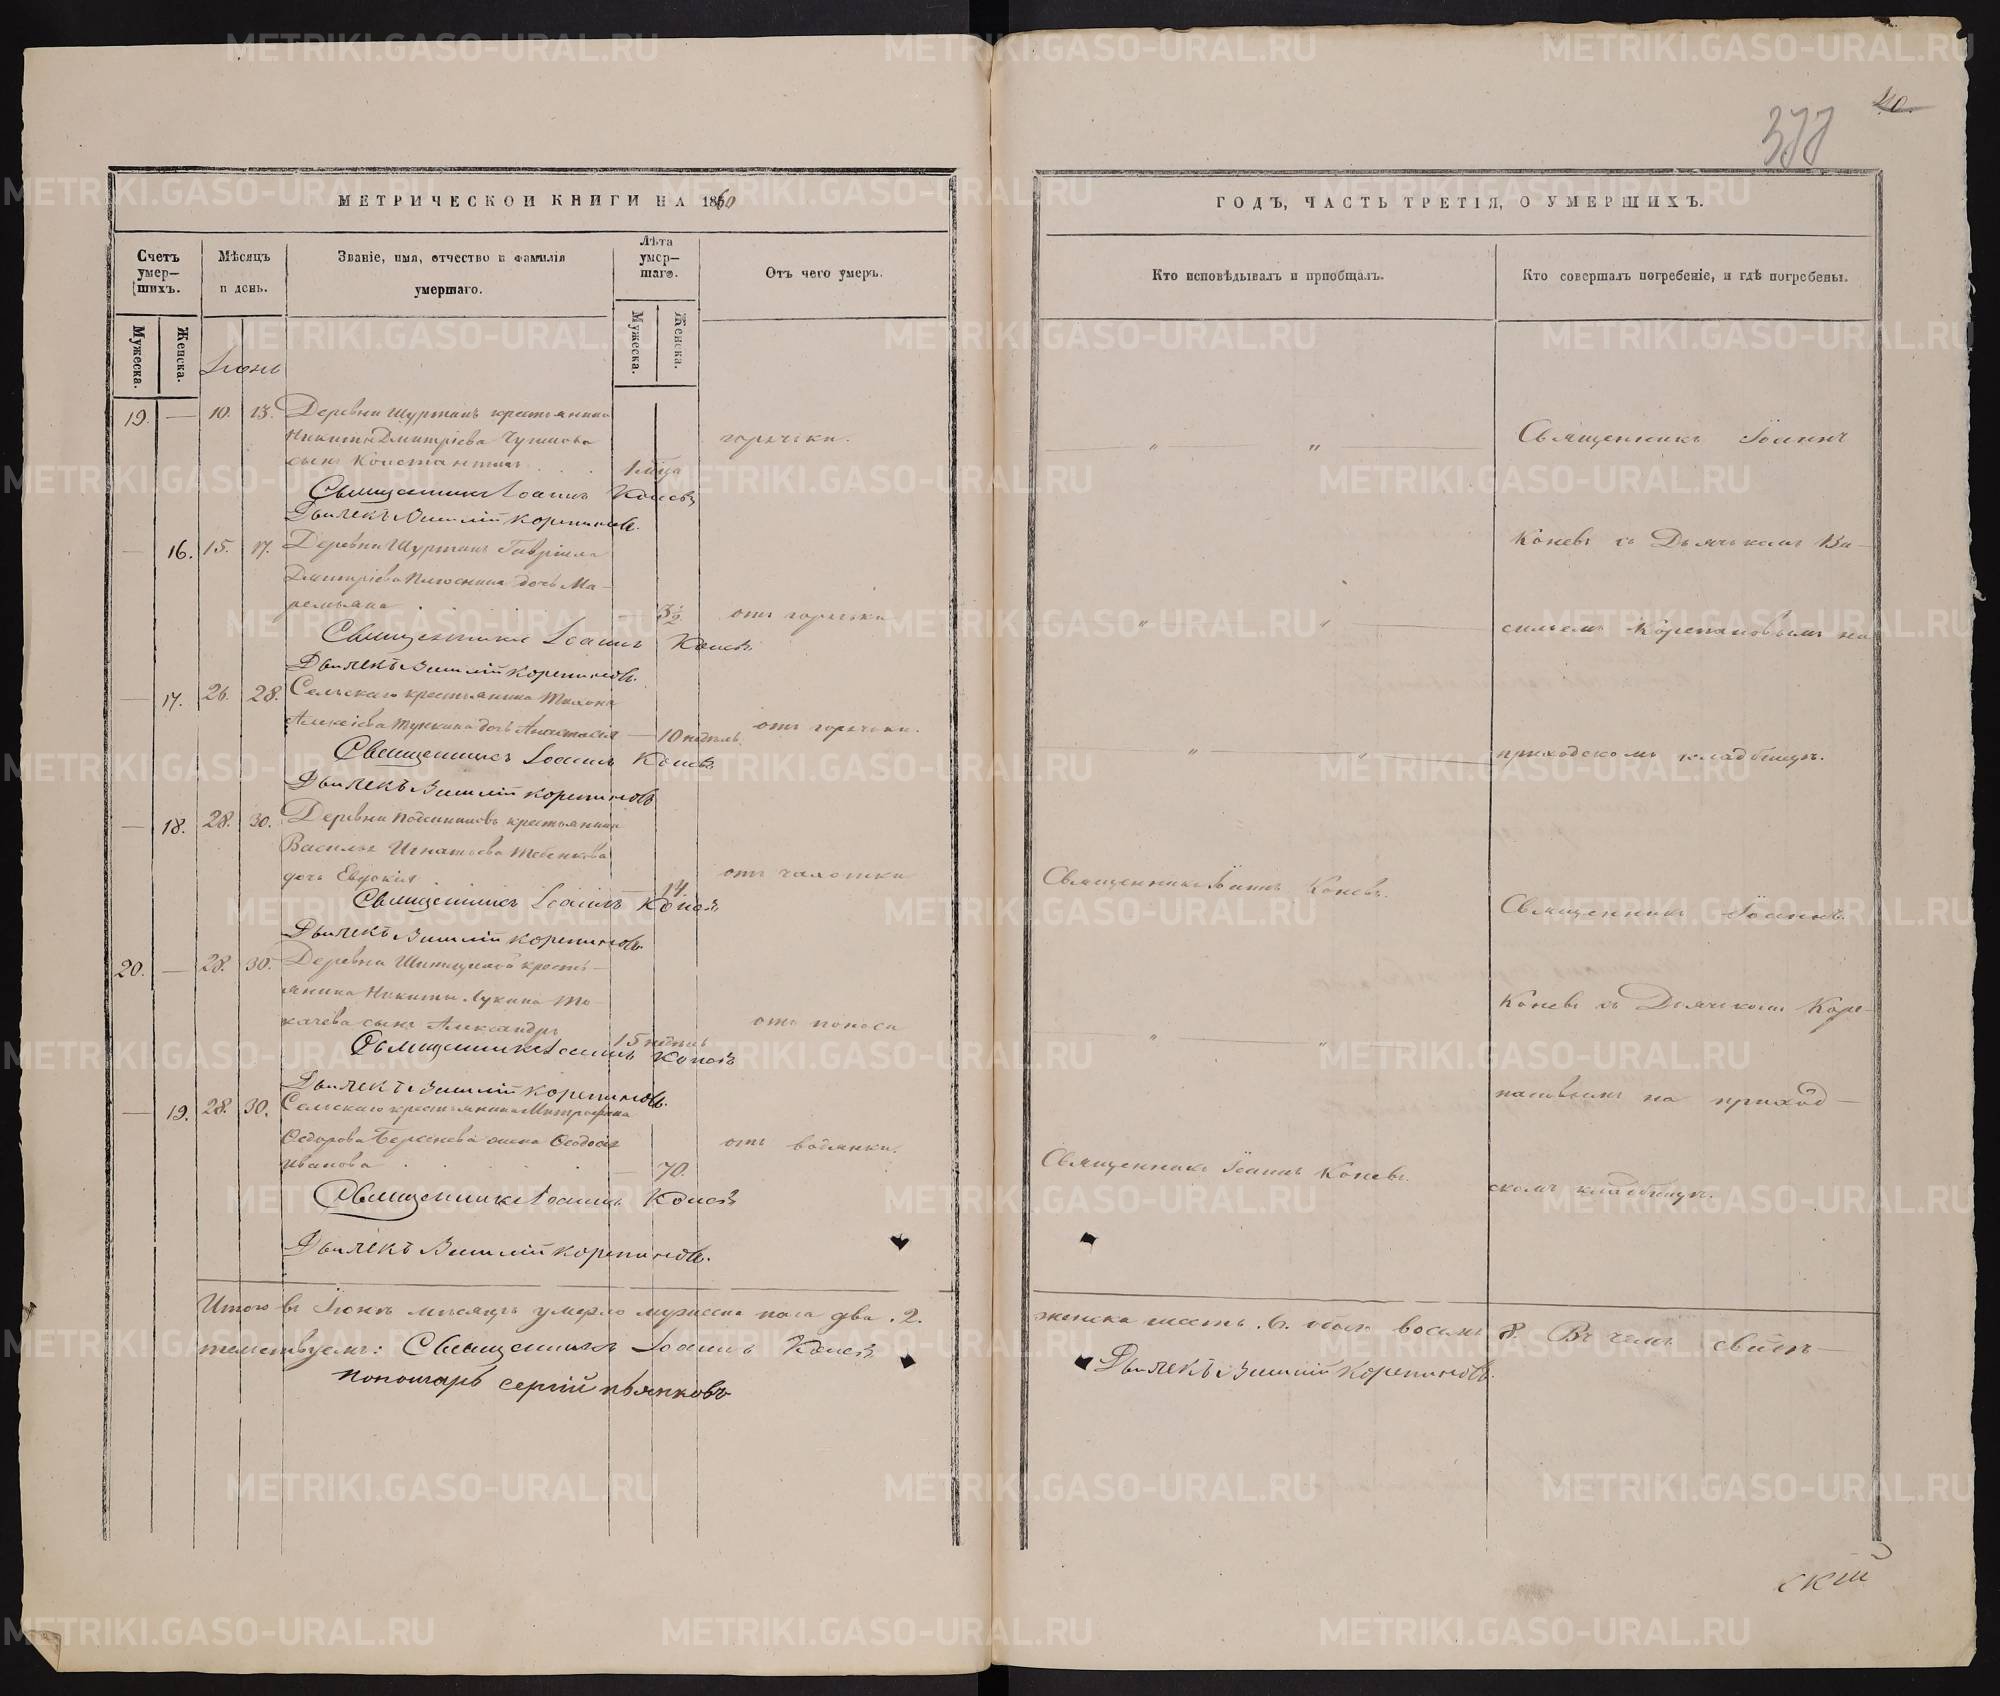 40.
377
МЕТРИЧЕСКОЙ КНИГИ НА 1860
ГОДЪ, ЧАСТЬ ТРЕТІЯ, О УМЕРШИХЪ.
Счетъ умер—шихъ.
Мѣсяцъ и день.
Званіе, имя, отчество и фамилія умершаго.
Лѣта умер—шаго.
Отъ чего умеръ.
Кто исповѣдывалъ и пріобщалъ.
Кто совершалъ погребеніе, и гдѣ погребены.
Мужеска.
Женска.
Мужеска.
Женска.
Іюнь
19. — 10. 13. Деревни Шуртанъ крестьянина
Никиты Дмитріева
сынъ Константинъ . . . 1 мѣсяца
горячки.
Священникъ Іоаннъ Коневъ
Дьячекъ Василій Корепановъ.
— 16. 15. 17. Деревни Шуртанъ Гавріила
Дмитріева Плюснина дочь Ма—
ремьяна . . . 3½
отъ горячки
Священникъ Іоаннъ Коневъ
Дьячекъ Василій Корепановъ.
— 17. 26. 28. Сельскаго крестьянина Тихона
Алексіева дочь Анастасія — 10 недѣль.
отъ горячки.
Священникъ Іоаннъ Коневъ
Дьячекъ Василій Корепановъ
— 18. 28. 30. Деревни крестьянина
Василья Игнатьева Тебенкова
дочь Евдокія — 14.
отъ чахотки
Священникъ Іоаннъ Коневъ
Дьячекъ Василій Корепановъ.
20. — 28. 30. Деревни кресть—
янина Никиты Лукина То—
качева сынъ Александръ 15 недѣль
отъ поноса
Священникъ Іоаннъ Коневъ
Дьячекъ Василій Корепановъ.
— 19. 28. 30. Сельскаго крестьянина Митрофана
Ѳедорова Берсенева жена Ѳеодосія
Иванова . . . — 70.
отъ водянки.
Священникъ Іоаннъ Коневъ
Дьячекъ Василій Корепановъ.
Итого въ Іюнѣ мѣсяцѣ умерло мужеска пола два .2.
тельствуемъ: Священникъ Іоаннъ Коневъ
Пономарь Сергій Пьянковъ
Священникъ Іоаннъ
Коневъ съ Дьячкомъ Ва—
сильемъ Корепановымъ на
приходскомъ кладбищѣ.
Священникъ Іоаннъ Коневъ.
Священникъ Іоаннъ
Коневъ съ Дьячкомъ Коре—
пановымъ на приход—
скомъ кладбищѣ.
Священникъ Іоаннъ Коневъ.
женска шесть .6. обоего восемь 8. Въ чемъ свидѣ—
Дьячекъ Василій Корепановъ.
скій
METRIKI.GASO-URAL.RU